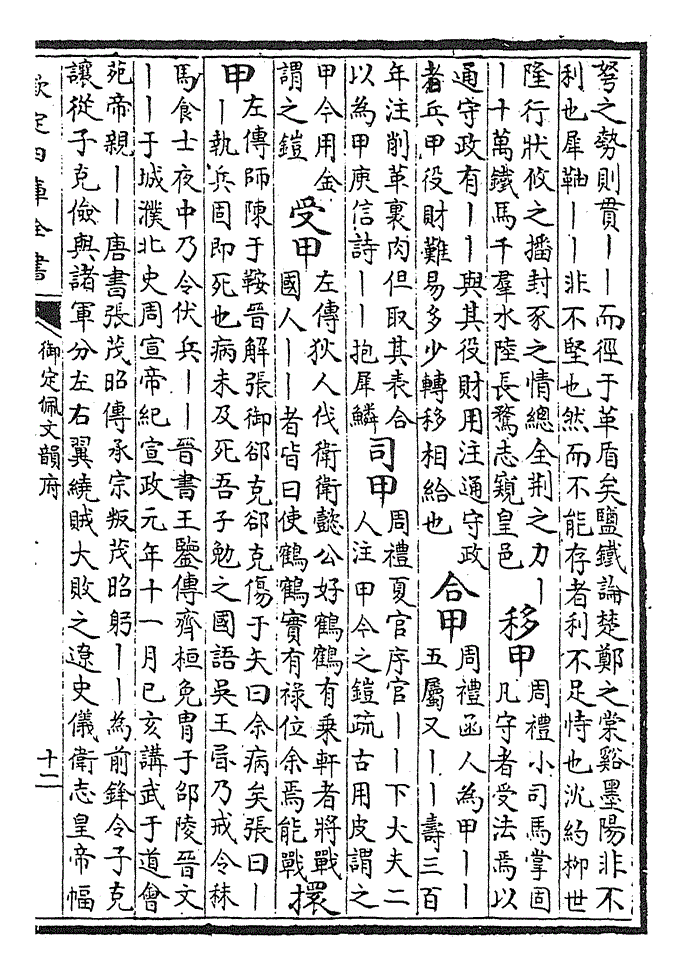 弩之勢則貫丨丨而徑于革盾矣鹽鐵論楚鄭之棠谿墨陽非不
利也犀軸丨丨非不堅也然而不能存者利不足恃也沈約柳世
隆行狀攸之播封豕之情總全荆之力丨
丨十萬鐵馬千羣水陸長騖志窺皇邑
移甲
周禮小司馬掌固
凡守者受法焉以
通守政有丨丨與其役財用注通守政
者兵甲役財難易多少轉移相給也
合甲
周禮函人為甲丨丨
五屬又丨丨壽三百
年注削革裏肉但取其表合
以為甲庾信詩丨丨抱犀鱗
司甲
周禮夏官序官丨丨下大夫二
人注甲今之鎧疏古用皮謂之
甲今用金
謂之鎧
受甲
左傳狄人伐衛衛懿公好鶴鶴有乘軒者將戰
國人丨丨者皆曰使鶴鶴實有祿位余焉能戰
擐
甲
左傳師陳于鞍晉解張御郤克郤克傷于矢曰余病矣張曰丨
丨執兵固即死也病未及死吾子勉之國語吳王昬乃戒令秣
馬食士夜中乃令伏兵丨丨晉書王鑒傳齊桓免冑于邵陵晉文
丨丨于城濮北史周宣帝紀宣政元年十一月已亥講武于道會
苑帝親丨丨唐書張茂昭傳承宗叛茂昭躬丨丨為前鋒令子克
讓從子克儉與諸軍分左右翼繞賊大敗之遼史儀衛志皇帝幅
欽定四庫全書
御定佩文韻府
十二